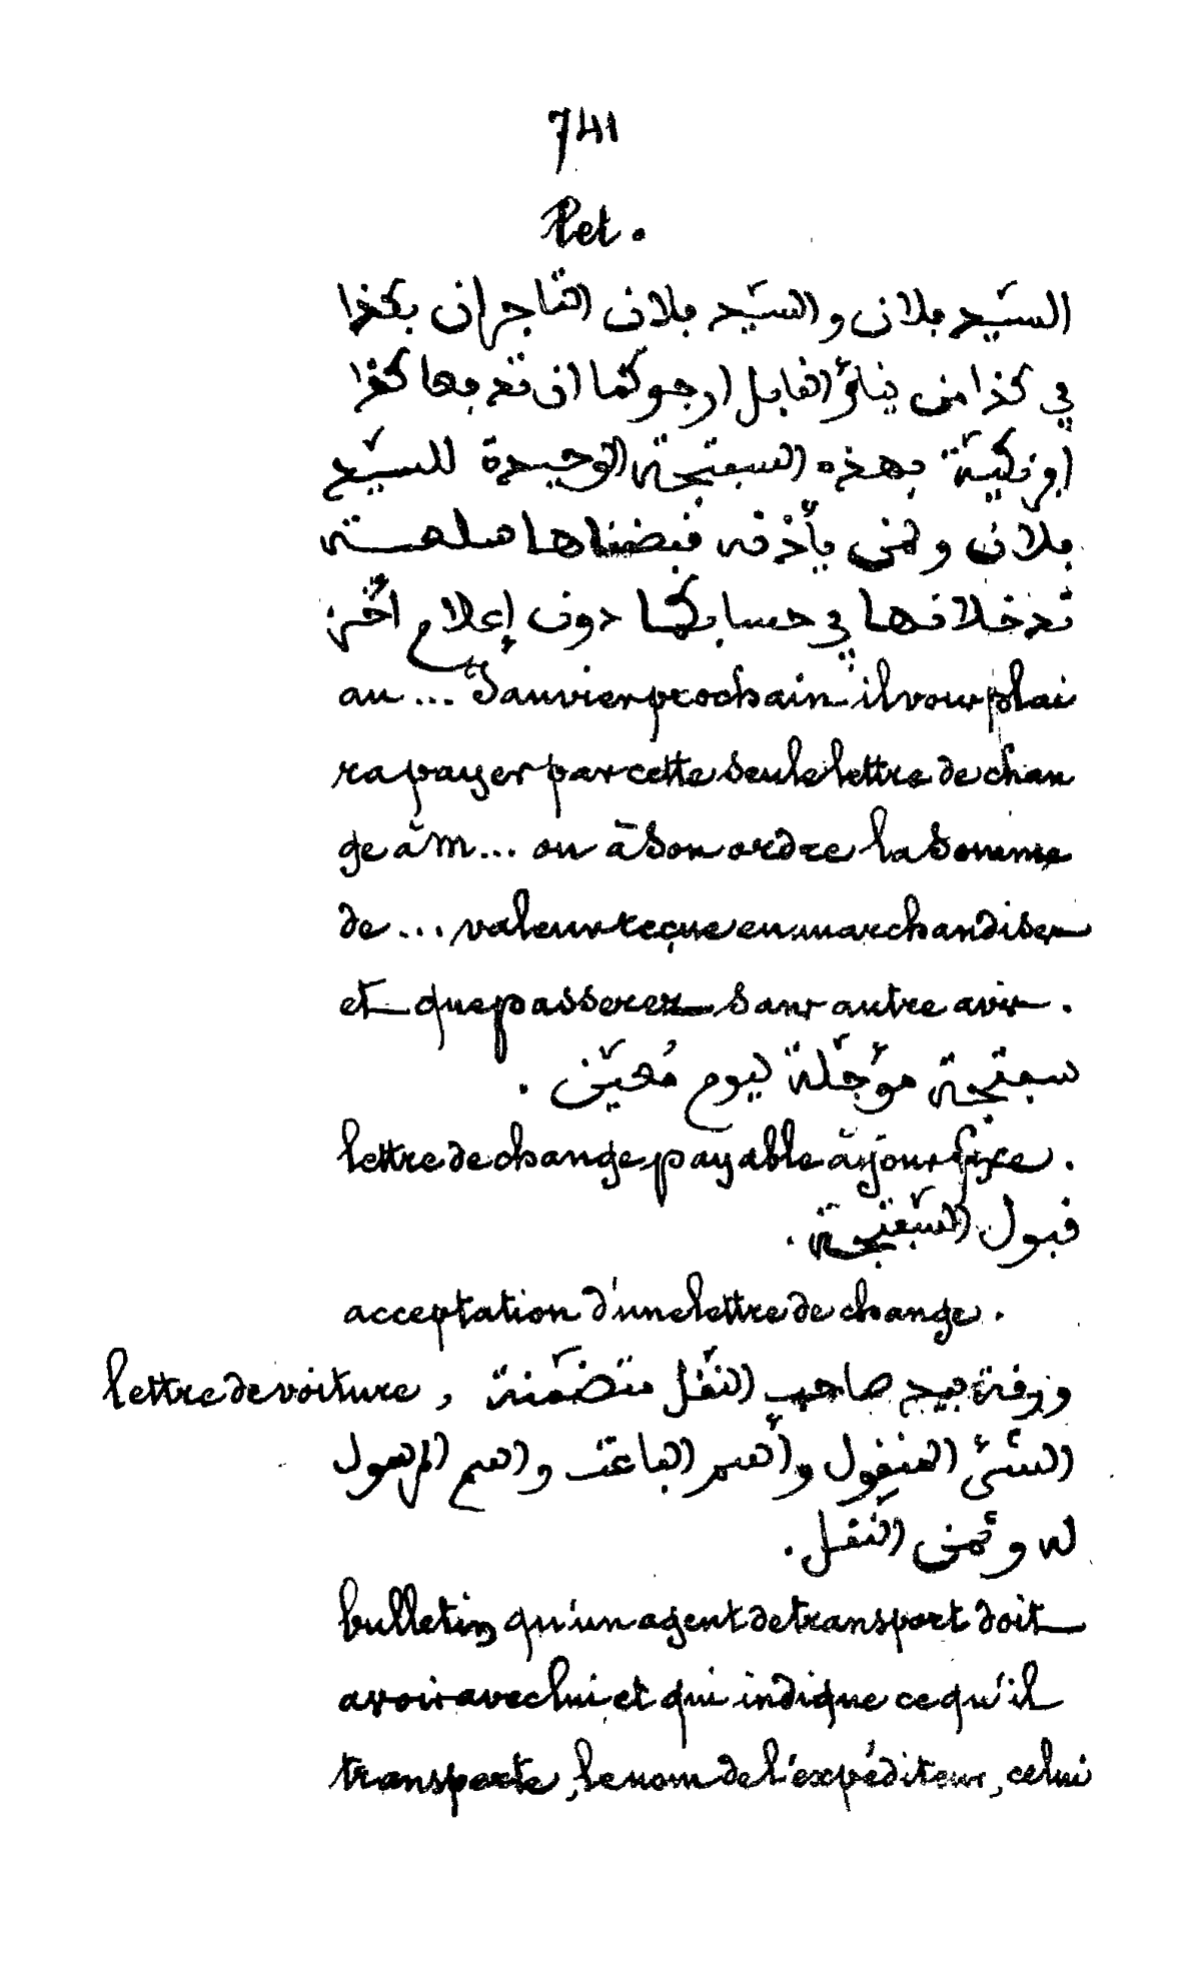 741
Let.
السّيد ڢلان والسّيد ڢلان التّاجران بكذا
في كذا من ينلؤ القابل ارجوكما ان تدڢعا كذا
اڢرنكيّة بهذه السڢتجة الوحيدة للسّيد
ڢلان ولمن يأذنه قبضناها سلعة
تدخلانها في حسابكما دون إعلام آخر:
au ... Janvier prochain il vous plai
ra payer par cette seule lettre de chan
ge à M... ou à son ordre la somme
de ... valeur reçue en marchandises
et que passerez sans autre avis.
سڢتجة مؤجّلة ليوم مُعيّن.
lettre de change payable à jour fixe.
قبول السّڢتجة.
acceptation d'une lettre de change.
lettre de voiture, ورقة بيد صاحب النّقل متضمّنة
الشّئ المنقول وأسم الباعث واسم المرسول
له وثمن النّقل.
bulletin qu'un agent de transport doit
avoir avec lui et qui indique ce qu'il
transporte, le nom de l'expéditeur, celui